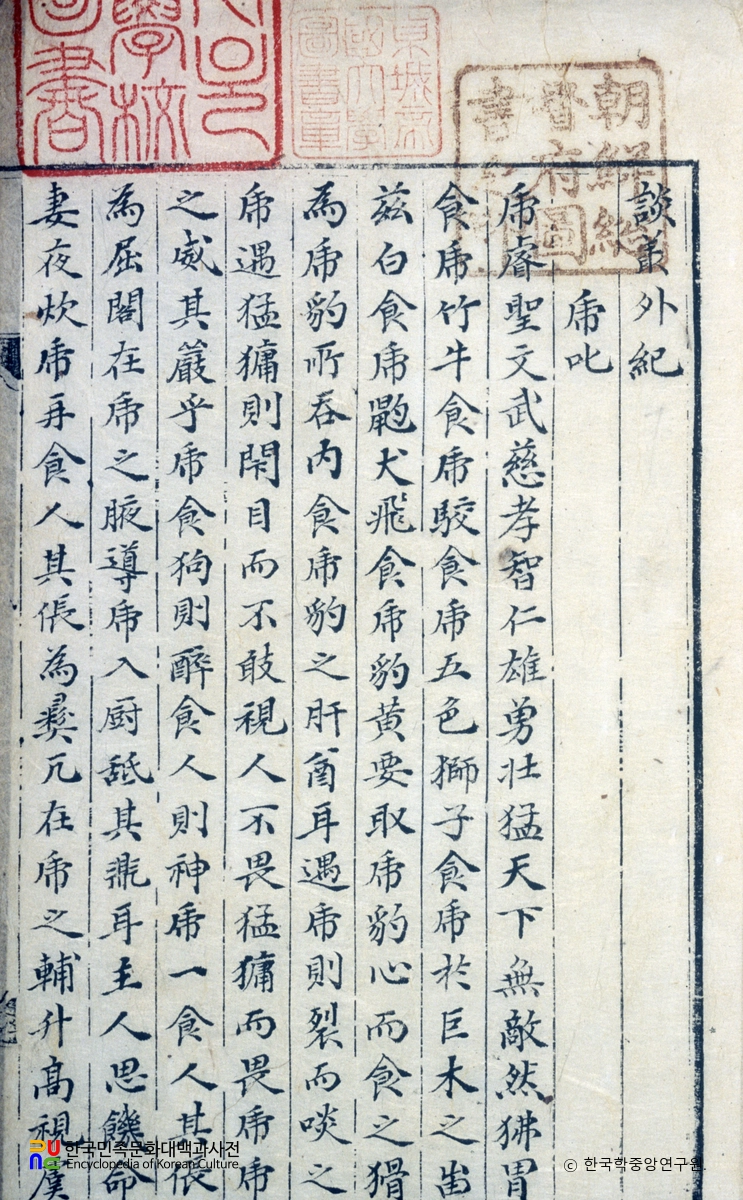 談叢外紀
虎叱
虎睿聖文武慈孝智仁雄勇壯猛天下無敵然狒胃
食虎竹牛食虎駮食虎五色獅子食虎於巨木之岫
茲白食虎䶂犬飛食虎豹黃要取虎豹心而食之猾
為虎豹所吞內食虎豹之肝酋耳遇虎則裂而啖之
虎遇猛㺎則閉目而不敢視人不畏猛㺎而畏虎虎
之威其嚴乎虎食狗則醉食人則神虎一食人其倀
為屈閣在虎之腋導虎入厨舐其鼎耳主人思饑命
妻夜炊虎再食人其倀為彝兀在虎之輔升高視虞
朝鮮總
督府圖
書
京城帝
國大學
圖書章
學校
圖書
한국민족문화대백과사전
Encyclopedia of Korean Culture
© 한국학중앙연구원.